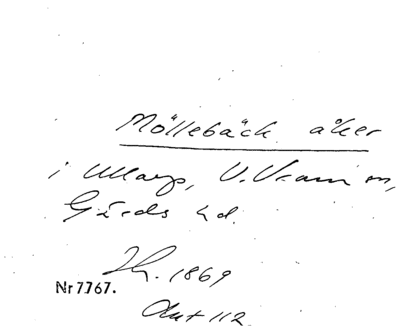 Möllebäck åker
i Ullarp, V. Vram sn,
Gärds hd.
Ih. 1869
Nr 7767.
Akt 112